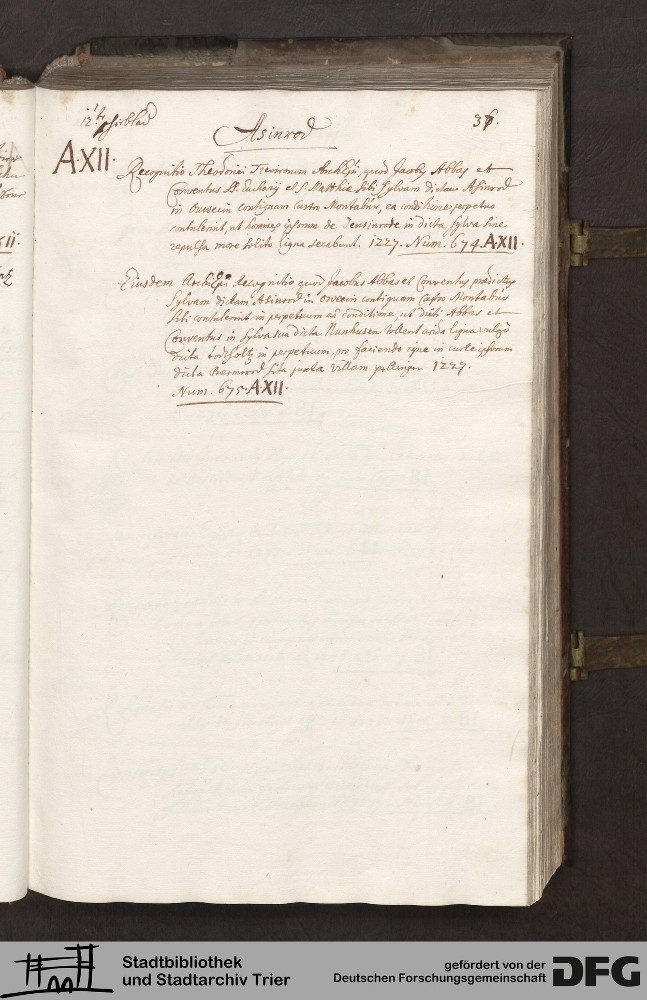 12te
36.
Asinrod
A·XII·
Recognitio Theodorici Trevirorum Archiepi, quod Jacobg Abbas et
Conventus St. Eucharij et S. Matthiæ sibi sylvam dictam Asinrod
in Orwein contiguam castro Montabur, ea conditione perpetuo
contulerint, ut homines ipsorum de in dicta sylva sine
repulsa more solito ligna secabunt. 1227. Num. 674. A·XII·
Eiusdem Archiepi Recognitio quod Jacobus Abbas et Conventus prædictus
Sylvam dictam Asinrod in Orwein contiguam castro Montabur
sibi contulerint in perpetuum eâ conditione, ut dicti Abbas et
Conventus in sylva sua dicta Nunhusen tollent arida ligna vulgo
dicta todtholtz in perpetuum, pro faciendo igne in curte ipsorum
dicta Bermerod sita juxta villam 1227.
Num. 675. A·XII·
Stadtbibliothek
und Stadtarchiv Trier
gefördert von der
Deutschen Forschungsgemeinschaft
DFG